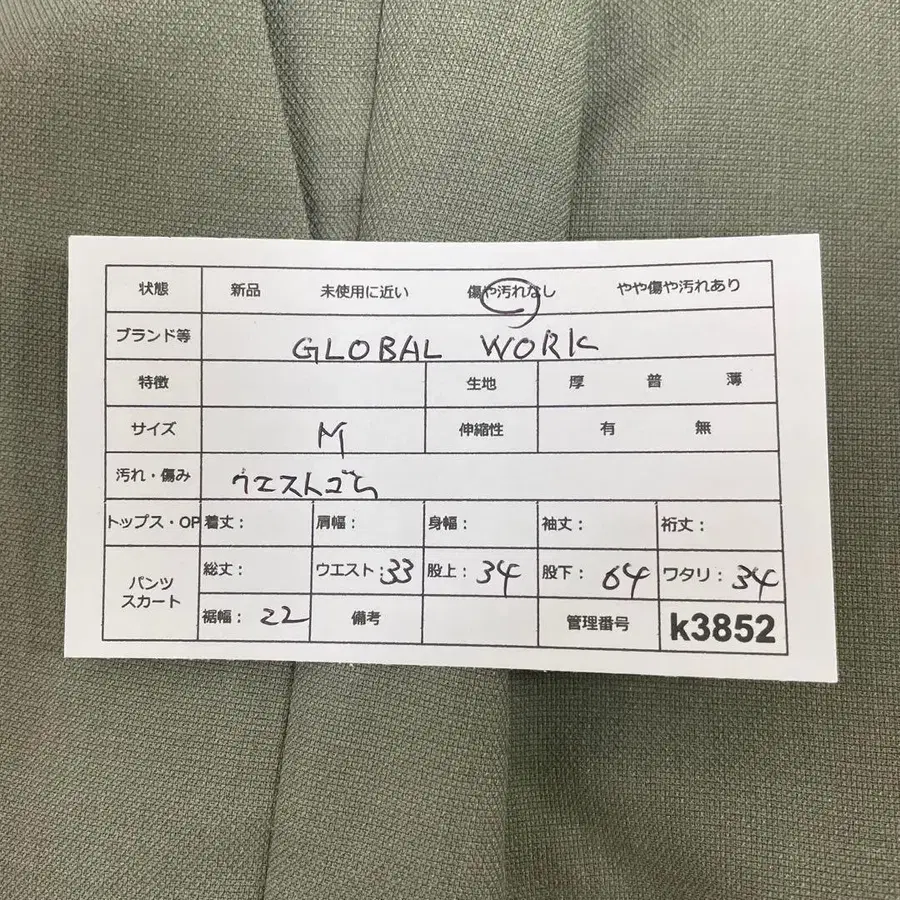 状態 新品 未使用に近い 傷や汚れなし やや傷や汚れあり
ブランド等 GLOBAL WORK
特徴 生地 厚 普 薄
サイズ M 伸縮性 有 無
汚れ・傷み ウエストゴム
トップス・OP 着丈: 肩幅: 身幅: 袖丈: 裄丈:
パンツ スカート 総丈: ウエスト:33 股上:34 股下:64 ワタリ:34
裾幅:22 備考 管理番号 k3852